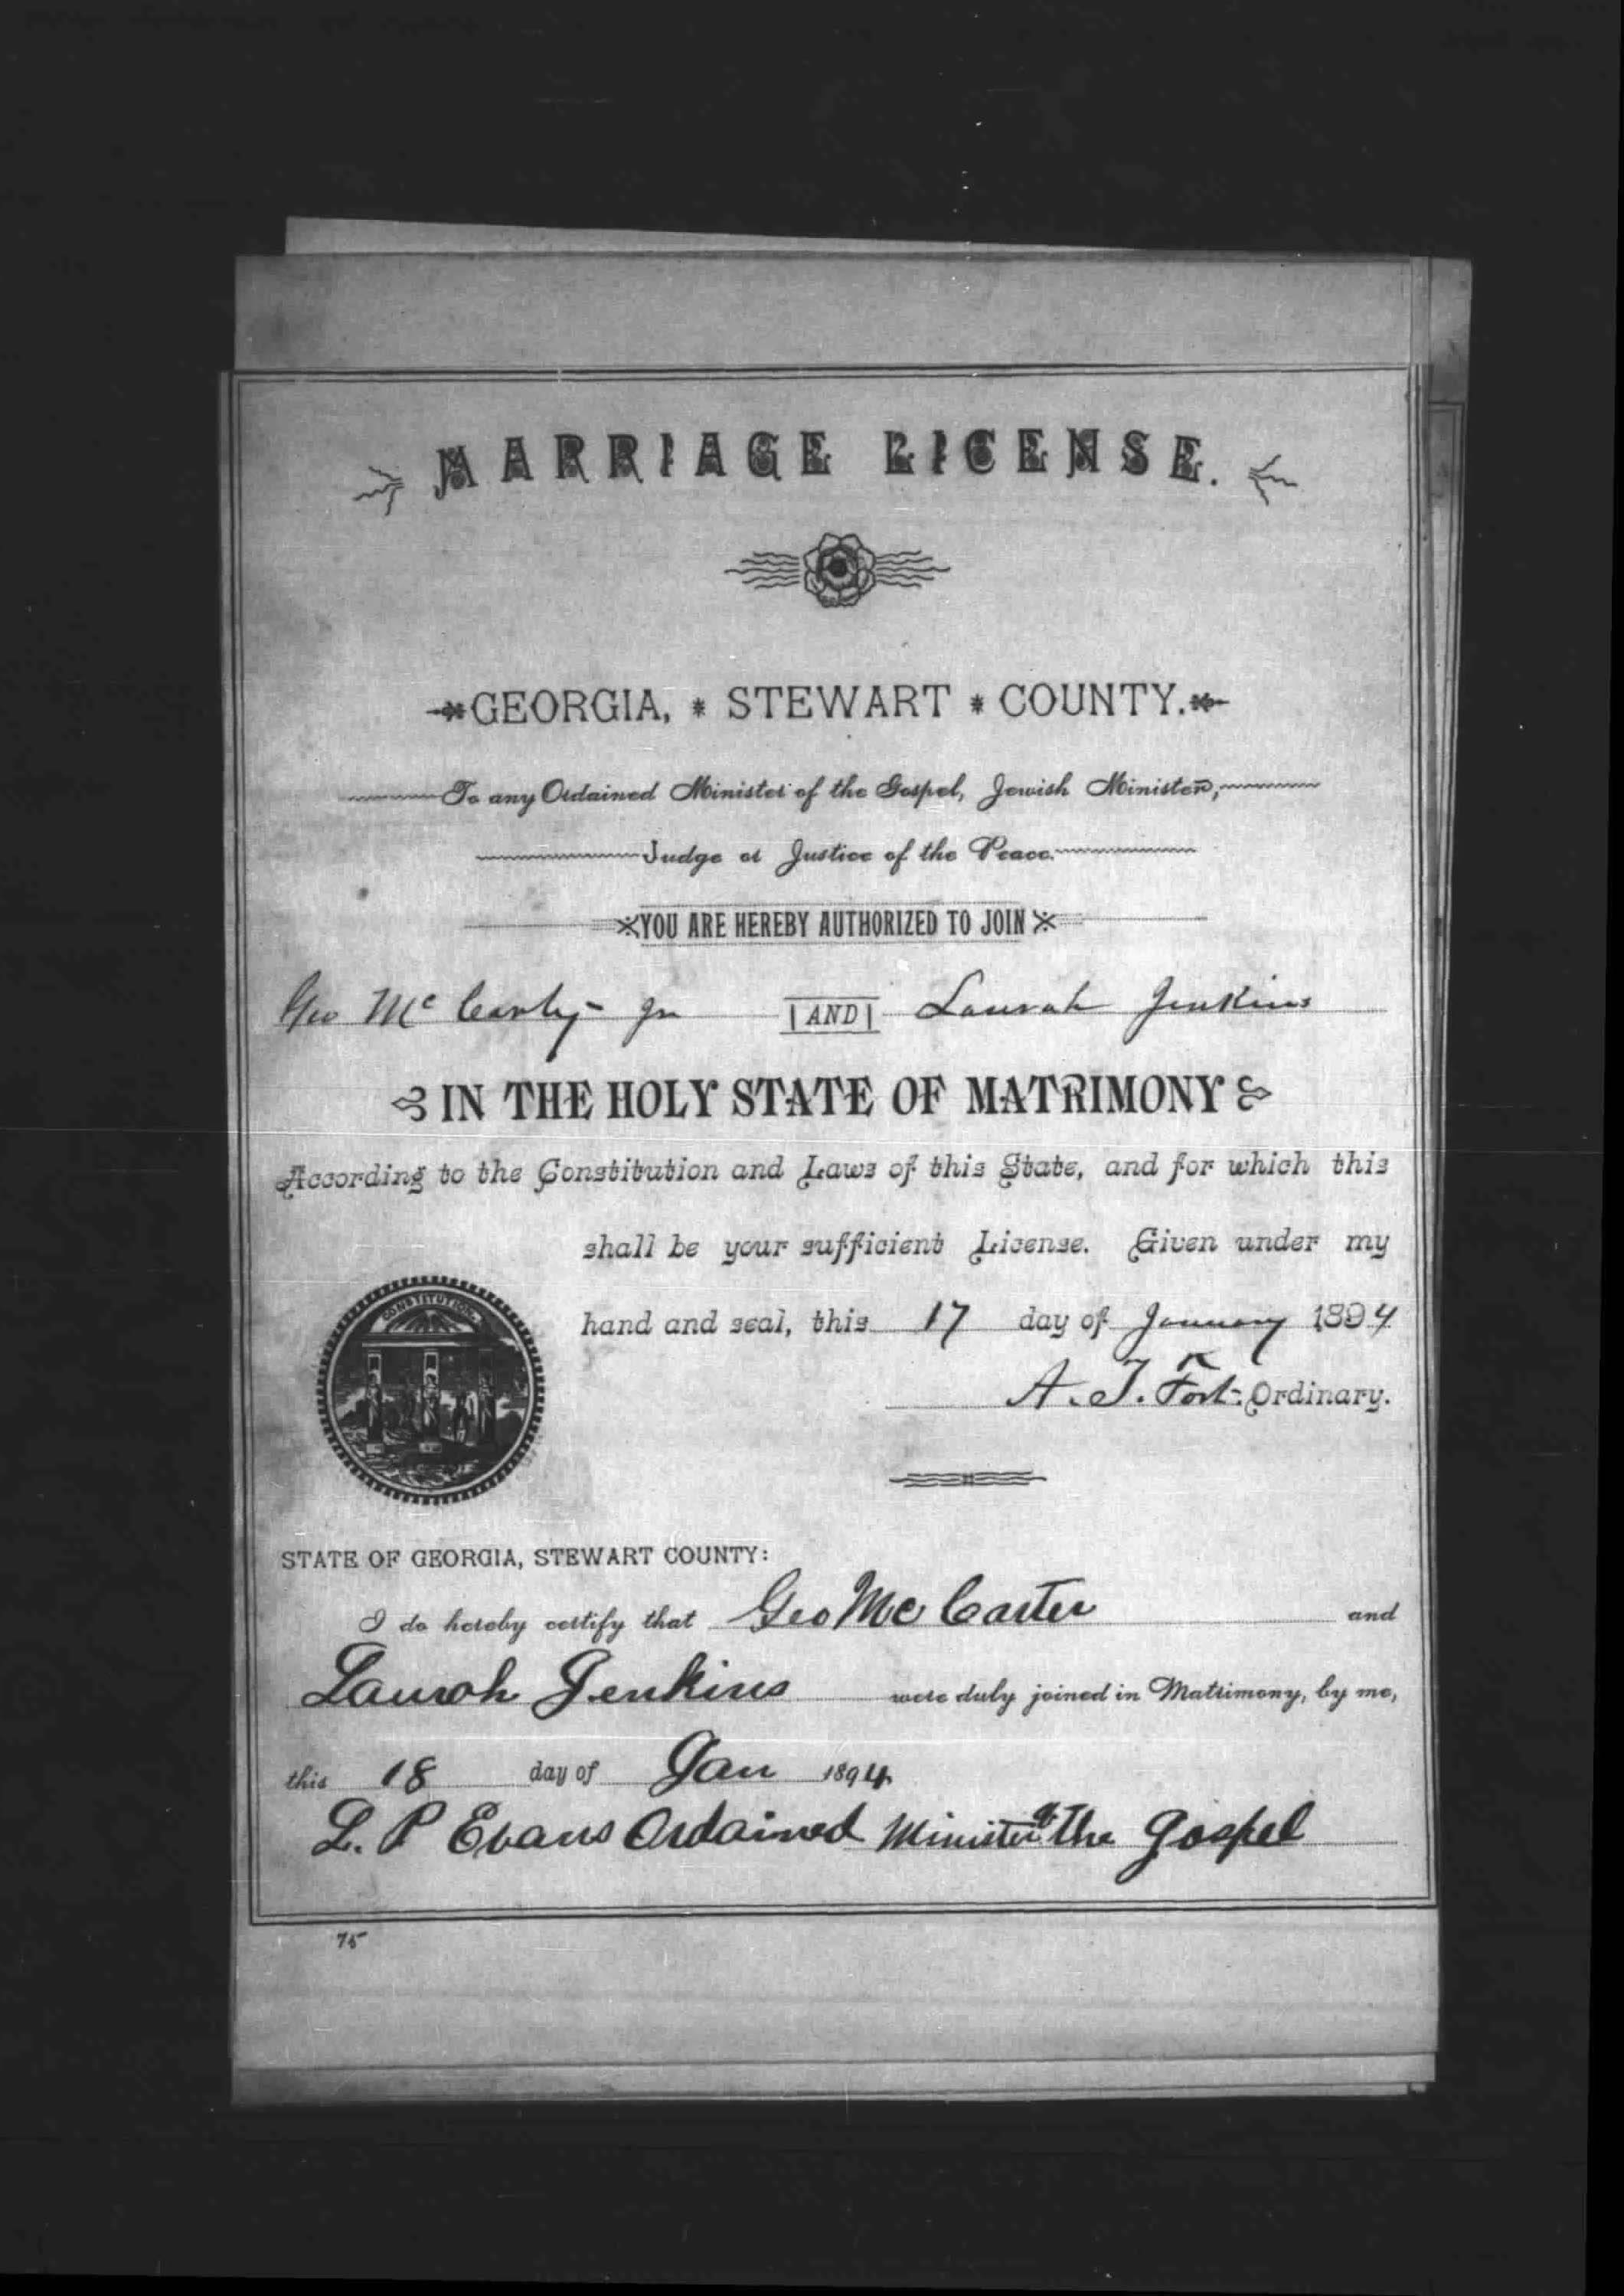 MARRIAGE LICENSE.
GEORGIA, * STEWART * COUNTY.
To any Ordained Minister of the Gospel, Jewish Minister,
Judge or Justice of the Peace.
YOU ARE HEREBY AUTHORIZED TO JOIN
Geo McCarty Jr AND Laurah Jenkins
IN THE HOLY STATE OF MATRIMONY
According to the Constitution and Laws of this State, and for which this
shall be your sufficient License. Given under my
CONSTITUTION
hand and seal, this 17 day of January 1894
A. T. Fort Ordinary.
STATE OF GEORGIA, STEWART COUNTY:
I do hereby certify that Geo Mc Carter and
Laurah Jenkins were duly joined in Matrimony, by me,
this 18 day of Jan 1894
L. P Evans Ordained Minister of The Gospel
75